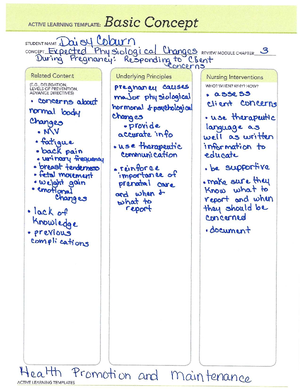 ACTIVE LEARNING TEMPLATE: Basic Concept
STUDENT NAME Daisy Coburn
CONCEPT Expected Physiological Changes REVIEW MODULE CHAPTER 3
During Pregnancy: Responding to Client
Concerns
Related Content
(E.G., DELEGATION,
LEVELS OF PREVENTION,
ADVANCE DIRECTIVES)
• concerns about
normal body
changes
• N/V
• fatigue
• back pain
• urinary frequency
• breast tenderness
• fetal movement
• weight gain
• emotional
changes
• lack of
knowledge
• previous
complications
Underlying Principles
pregnancy causes
major physiological
hormonal & psychological
changes
• provide
accurate info
• use therapeutic
communication
• reinforce
importance of
prenatal care
and when &
what to
report
Nursing Interventions
WHO? WHEN? WHY? HOW?
• assess
client concerns
• use therapeutic
language as
well as written
information to
educate
• be supportive
• make sure they
know what to
report and when
they should be
concerned
• document
Health Promotion and Maintenance
ACTIVE LEARNING TEMPLATES